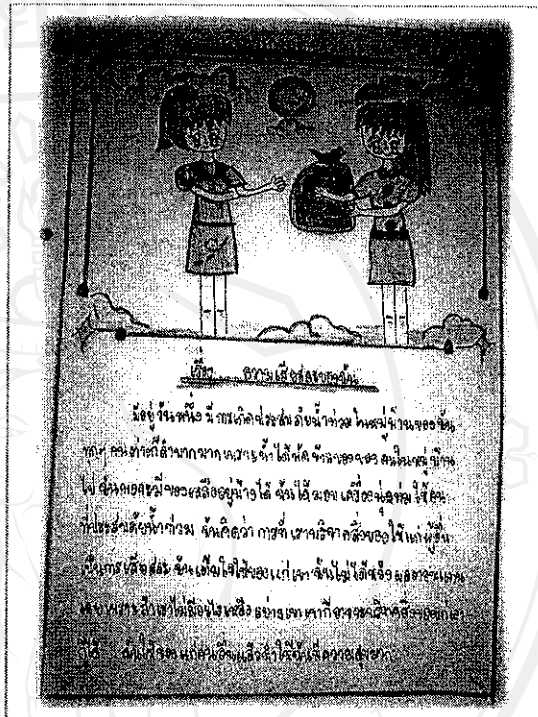 เรื่อง ความเสียสละของฉัน
มีอยู่วันหนึ่ง มีการเกิดประสบภัยน้ำท่วม ในหมู่บ้านของฉัน
ทุกๆ คนต่างก็ลำบากมาก เพราะน้ำได้พัดข้าวของของคนในหมู่บ้าน
ไป ฉันพอจะมีของเหลืออยู่บ้างได้ ฉันได้มอบเครื่องนุ่งห่มให้คน
ที่ประสบภัยน้ำท่วม ฉันคิดว่า การที่เราบริจาคสิ่งของให้แก่ผู้อื่น
เป็นการเสียสละ ฉันเต็มใจให้ของแก่เขา ฉันไม่ได้หวังผลตอบแทน
เพราะถ้าเราไม่มีอะไรเหลืออย่างเขา เขาก็อาจจะบริจาคสิ่งของแก่เรา
ก็ได้ ให้ของแก่คนอื่นแล้วทำให้ฉันมีความสุขมาก